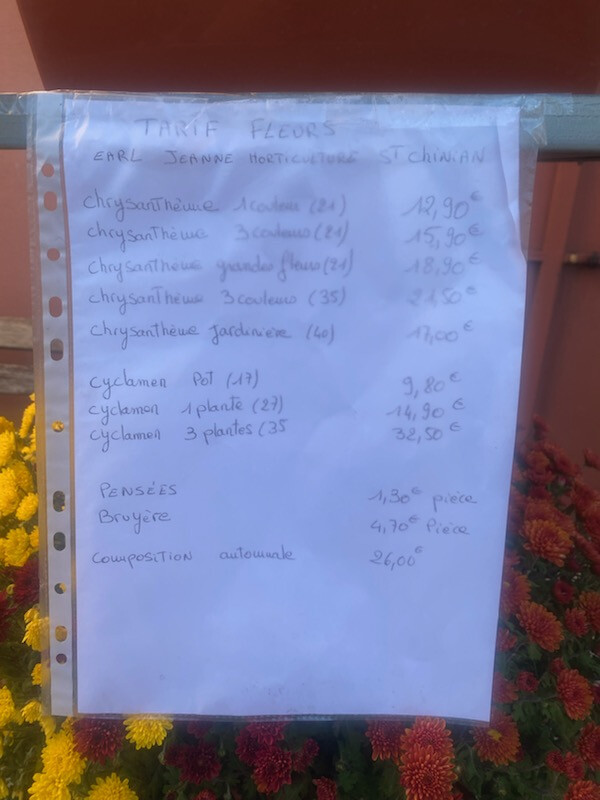 TARIF FLEURS
EARL JEANNE HORTICULTURE ST CHINIAN
Chrysanthème 1 couleur (21) 12,90€
Chrysanthème 3 couleurs (21) 15,90€
Chrysanthème grandes fleurs (21) 18,90€
Chrysanthème 3 couleurs (35) 21,50€
Chrysanthème Jardinière (40) 17,00€
Cyclamen Pot (17) 9,80€
cyclamen 1 plante (27) 14,90€
cyclamen 3 plantes (35 32,50€
PENSÉES 1,30€ pièce
Bruyère 4,70€ Pièce
Composition automnale 26,00€